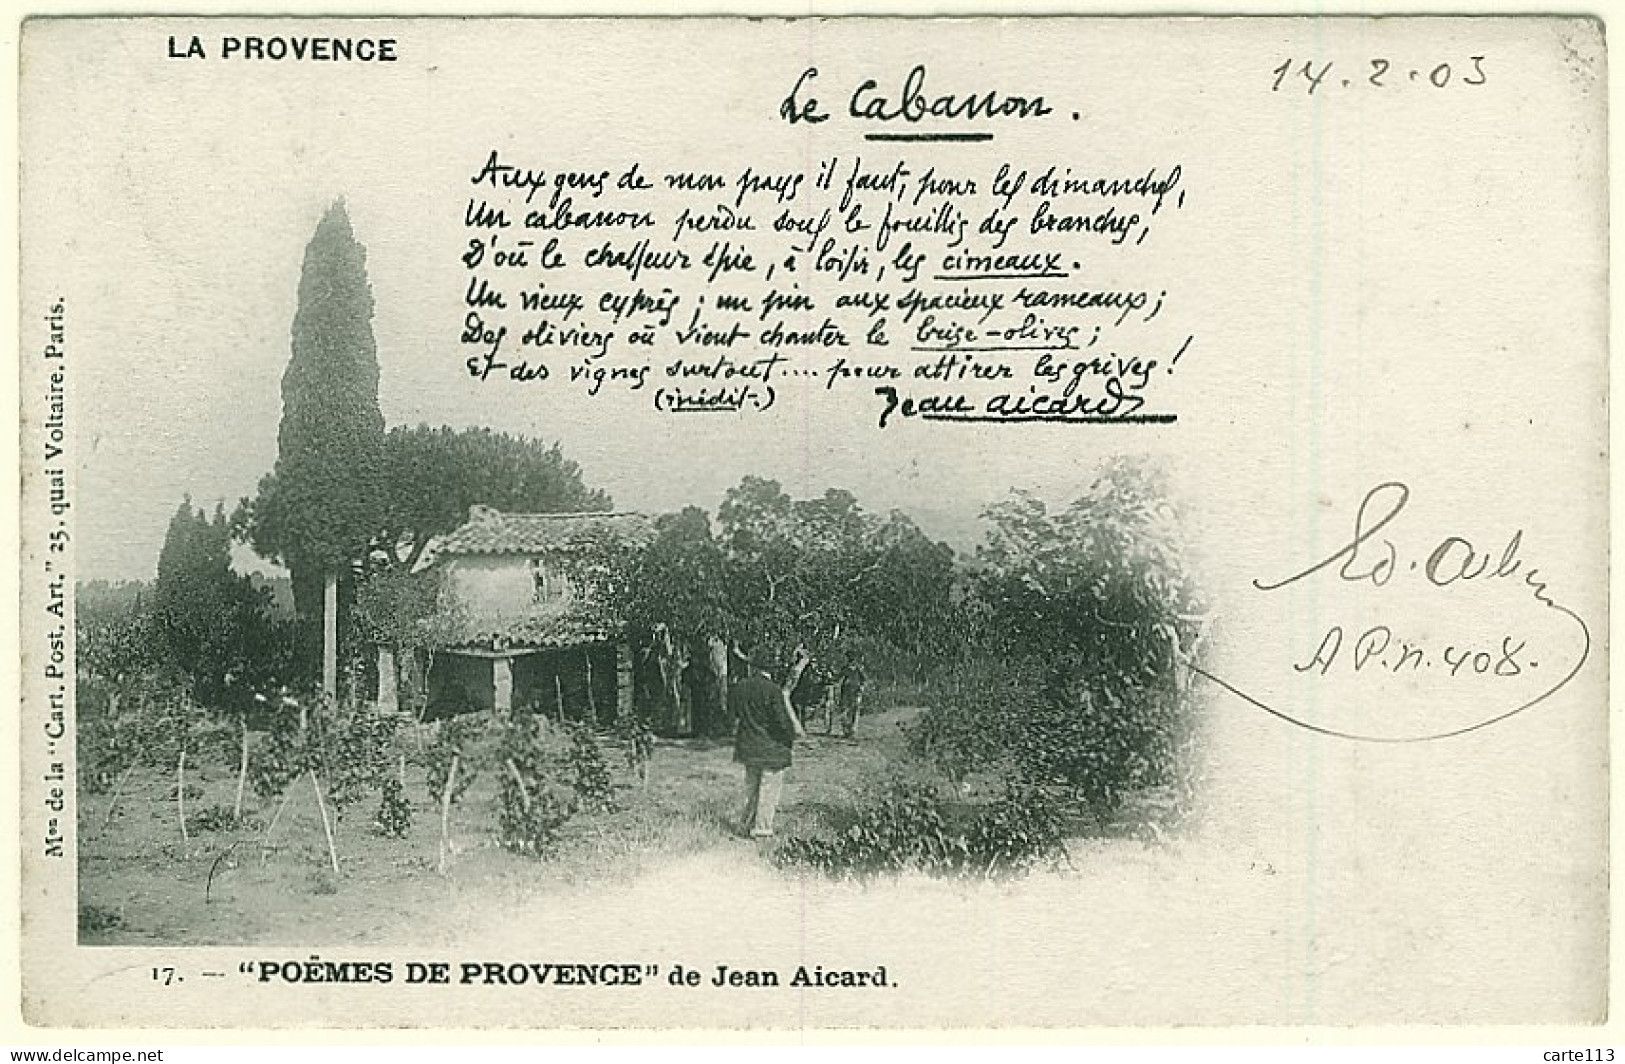 LA PROVENCE
14.2.03
Le Cabanon.
Aux gens de mon pays il faut, pour les dimanches,
Un cabanon perdu sous le fouillis des branches,
D'où le chasseur épie, à loisir, les cimeaux.
Un vieux cyprès ; un pin aux spacieux rameaux ;
Des oliviers où vient chanter le brise-olives ;
Et des vignes surtout.... pour attirer les grives !
(inédit.)
Jean Aicard
Mon de la "Cart. Post. Art." 25, quai Voltaire, Paris.
Ed.
A P.n. 408.
17. — "POËMES DE PROVENCE" de Jean Aicard.
www.delcampe.net
carte113